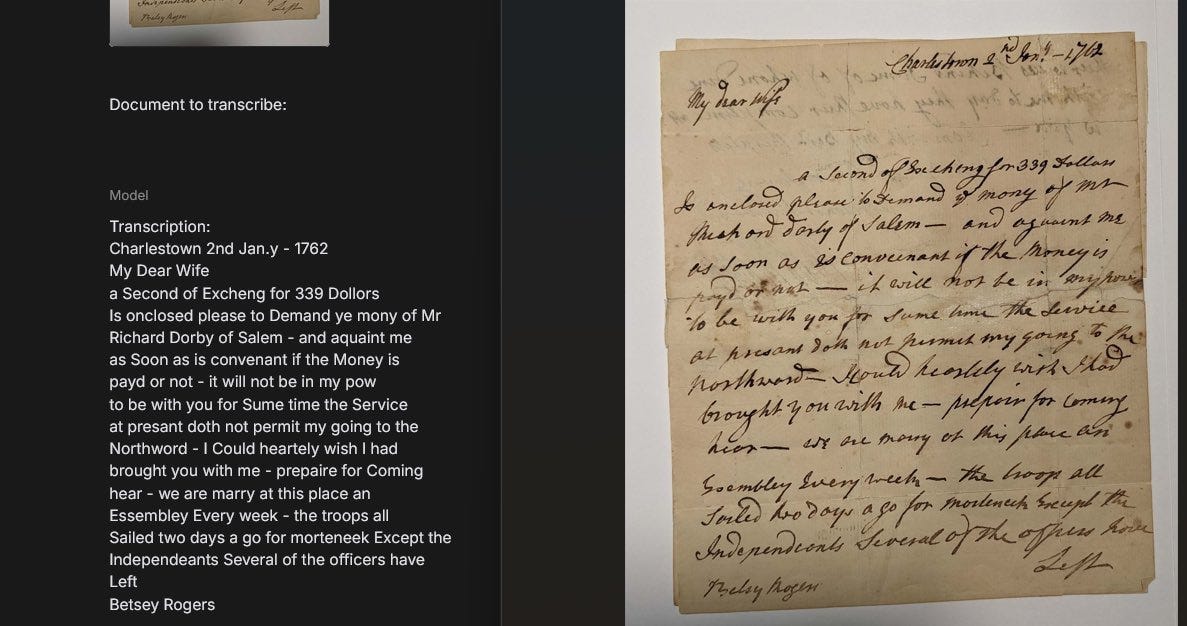 Independants Ever
Left
Betsy Rogers
Document to transcribe:
Model
Transcription:
Charlestown 2nd Jan.y - 1762
My Dear Wife
a Second of Excheng for 339 Dollors
Is onclosed please to Demand ye mony of Mr
Richard Dorby of Salem - and aquaint me
as Soon as is convenant if the Money is
payd or not - it will not be in my pow
to be with you for Sume time the Service
at presant doth not permit my going to the
Northword - I Could heartely wish I had
brought you with me - prepaire for Coming
hear - we are marry at this place an
Essembley Every week - the troops all
Sailed two days a go for morteneek Except the
Independeants Several of the officers have
Left
Betsey Rogers
Charlestown 2nd Jany - 1762
My dear wife
a Second of Excheng for 339 Dollars
Is onclosed please to Demand ye mony of Mr
Richard darly of Salem - and aquaint me
as Soon as is convenant if the Money is
payd or not - it will not be in my powr
to be with you for Sume time the Service
at presant doth not permit my going to the
northword - I Could heartely wish I had
brought you with me - prepair for Coming
hear - we are marry at this place an
Essembley Every week - the troops all
Sailed two days a go for morteneek Except the
Independeants Several of the officers have
Left
Betsy Rogers